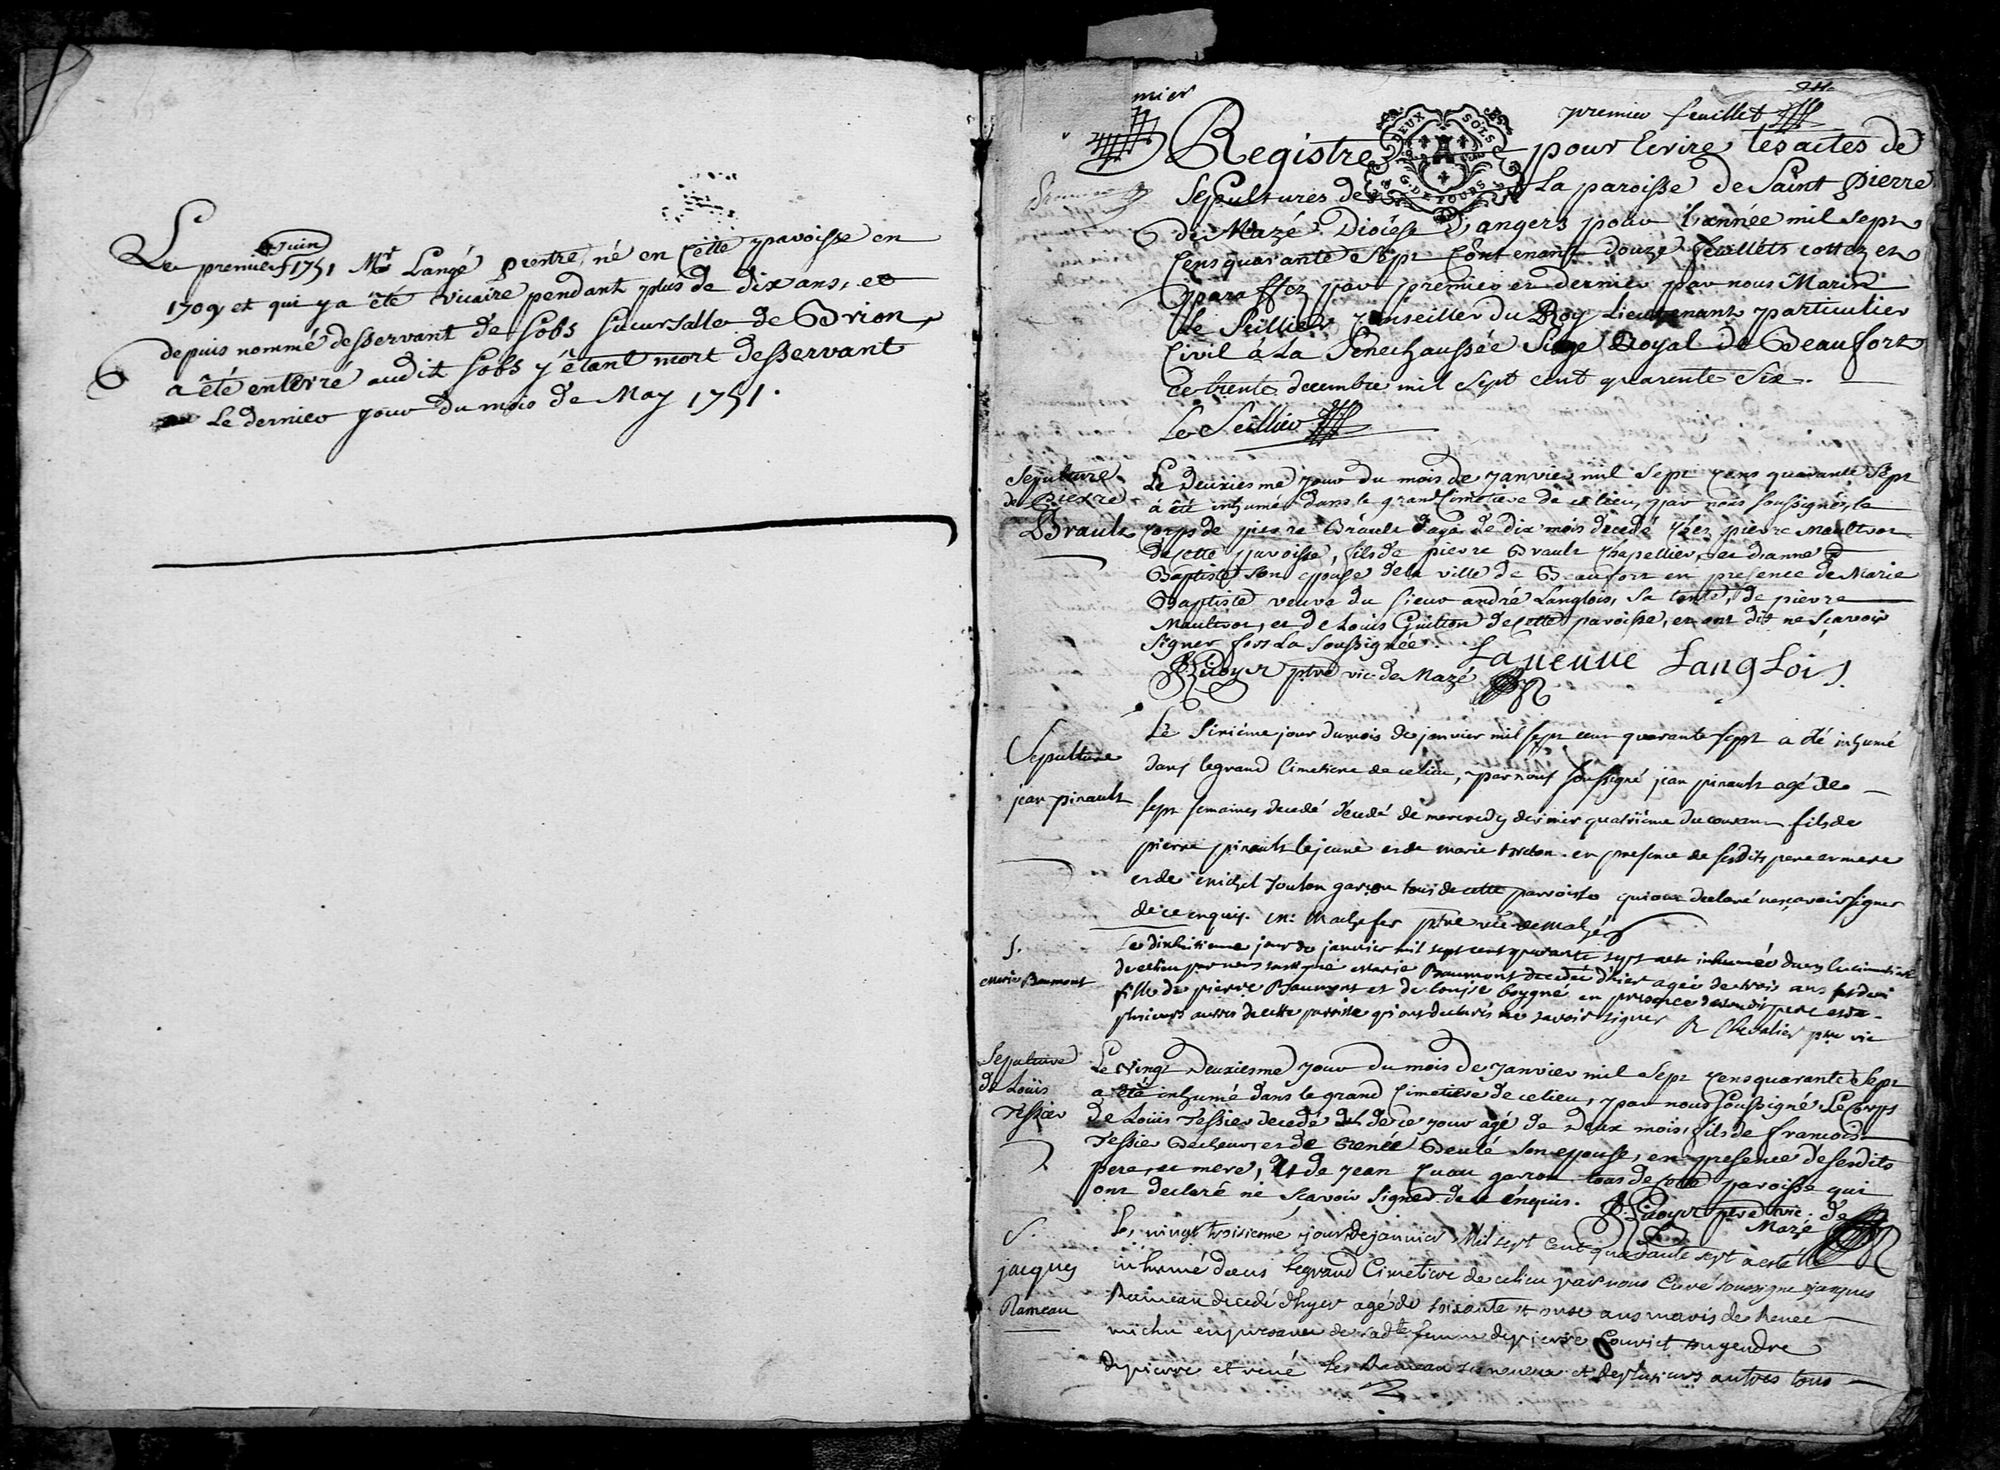 Le premier juin 1751 Mr Langé prestre, né en cette paroisse en
1709 et qui y a été vicaire pendant plus de dix ans, et
depuis nommé desservant de Sobs succursalle de Brion,
a été enterré audit Sobs y étant mort desservant
Le dernier jour du mois de May 1751.
mier
premier feuillet
Registre pour Ecrire les actes de
Sepultures de La paroisse de Saint Pierre
de Mazé Diocése D'angers pour L'année mil sept
Cens quarante Sept Contenant douze feuillets cottez et
paraffez par premier et dernier par nous Marin
Le Seillier Conseiller du Roy Lieutenant particulier
Civil à La Senechaussée Siege Royal de Beaufort
Ce trente decembre mil sept cent quarente Six.
Le Seillier
DEUX SOLS
G. DE TOURS
Sepulture
de Pierre
Brault
Le Deuxiesme jour du mois de janvier mil Sept cens quarante Sept
a été inhumé dans le grand Cimetiere de ce lieu, par nous soussigné, le
corps de pierre Brault agé de dix mois decedé chez pierre
de cette paroisse, fils de pierre Brault chapellier, et d'anne
Baptiste son epouse de la ville de Beaufort en presence de Marie
Baptiste veuve du Sieur andré Langlois, sa tante, de pierre
et de Louis Guitton de cette paroisse, et ont dit ne Scavoir
signer fors La Soussignée. La veuve Langlois.
ptre vic. de Mazé
Sepulture
jean pinault
Le Sixiéme jour du mois de janvier mil sept cent quarante sept a été inhumé
dans le grand Cimetiere de ce lieu, par nous soussigné jean pinault agé de
sept semaines decedé decedé de mercredy dernier quatriéme du courant fils de
pierre pinault le jeune et de marie en presence de sesdits pere et mere
et de michel garçon tous de cette parroisse qui ont declaré ne sçavoir signer
de ce enquis. ptre vic de Mazé
S.
marie Baumont
Le dixhuitieme jour de janvier mil sept cent quarante sept a été inhumée dans le cimetiere
de ce lieu par nous soussigné marie Beaumont decedée d'hier agée de trois ans et demi
fille de pierre Baumont et de louise en presence dudit pere et de
plusieurs autres de cette paroisse qui ont declarés ne savoir signer R Chevalier ptre vic
Sepulture
de Loüis
Tessier
Le Vingt Deuxiesme jour du mois de janvier mil Sept cens quarante Sept
a été inhumé dans le grand Cimetiere de ce lieu, par nous soussigné Le Corps
de Loüis Tessier decedé de ce jour agé de Deux mois, fils de francois
Tessier et de Renée son epouse, en presence de sesdits
pere, et mere, et de jean garcon tous de cette paroisse qui
ont declaré ne Scavoir Signer de ce enquis. ptre vic. de
Mazé
S.
jacques
Rameau
Le vingt troisieme jour de janvier Mil sept Cent quarante sept a esté
inhumé dans le grand Cimetiere de ce lieu par nous Curé soussigné jacques
Rameau decedé d'hyer agé de soixante et ans maris de Renée
en presence de ladte femme de pierre son gendre
de pierre et rené Les Rameau ses neveux et de plusieurs autres tous